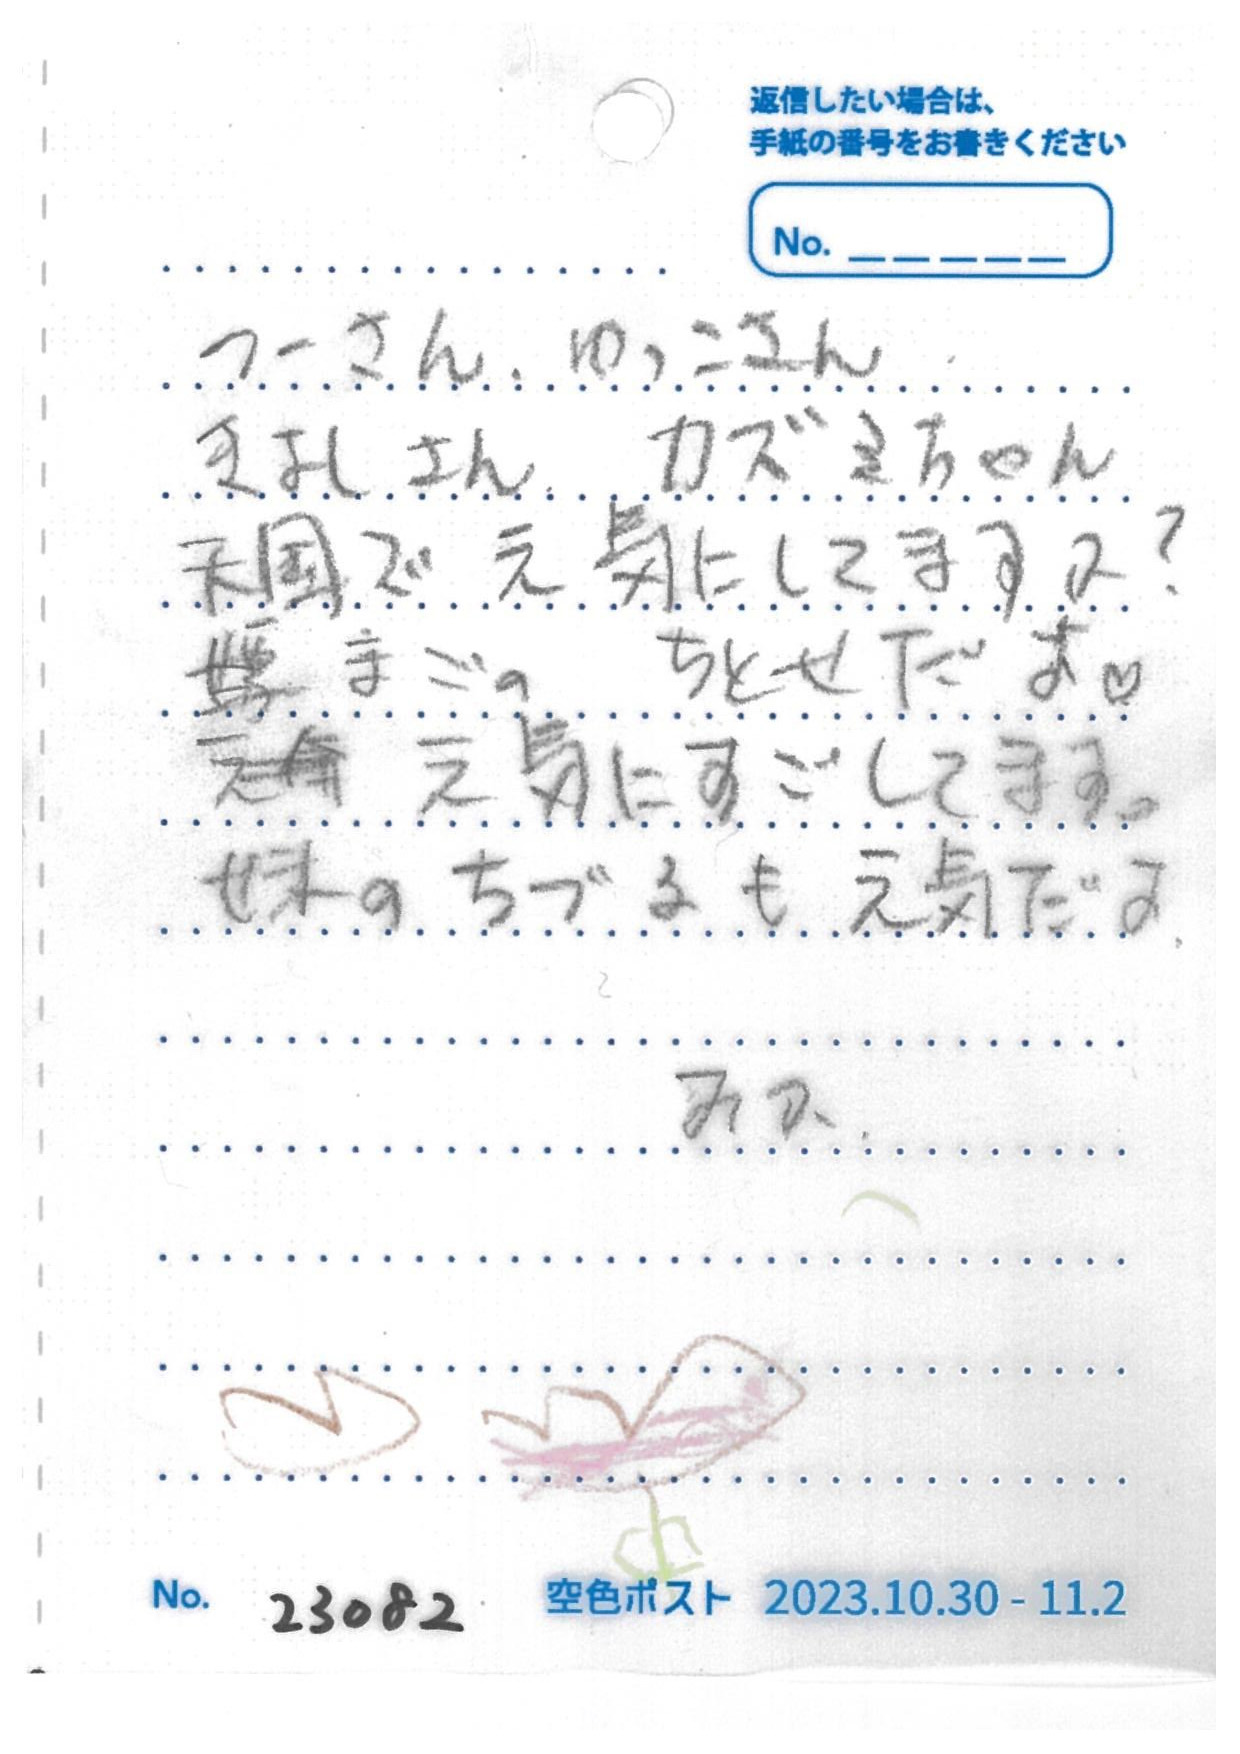 返信したい場合は、
手紙の番号をお書きください
No. _ _ _ _ _
つーさん、ゆっこさん
きよしさん カズえちゃん
天国で元気にしてますか?
まごの ちとせだよ♡
元気にすごしてます。
妹の ちづるも 元気だよ
みか
No. 23082 空色ポスト 2023.10.30 - 11.2